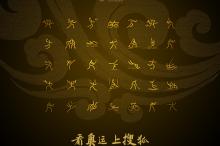 看奥运上搜狐